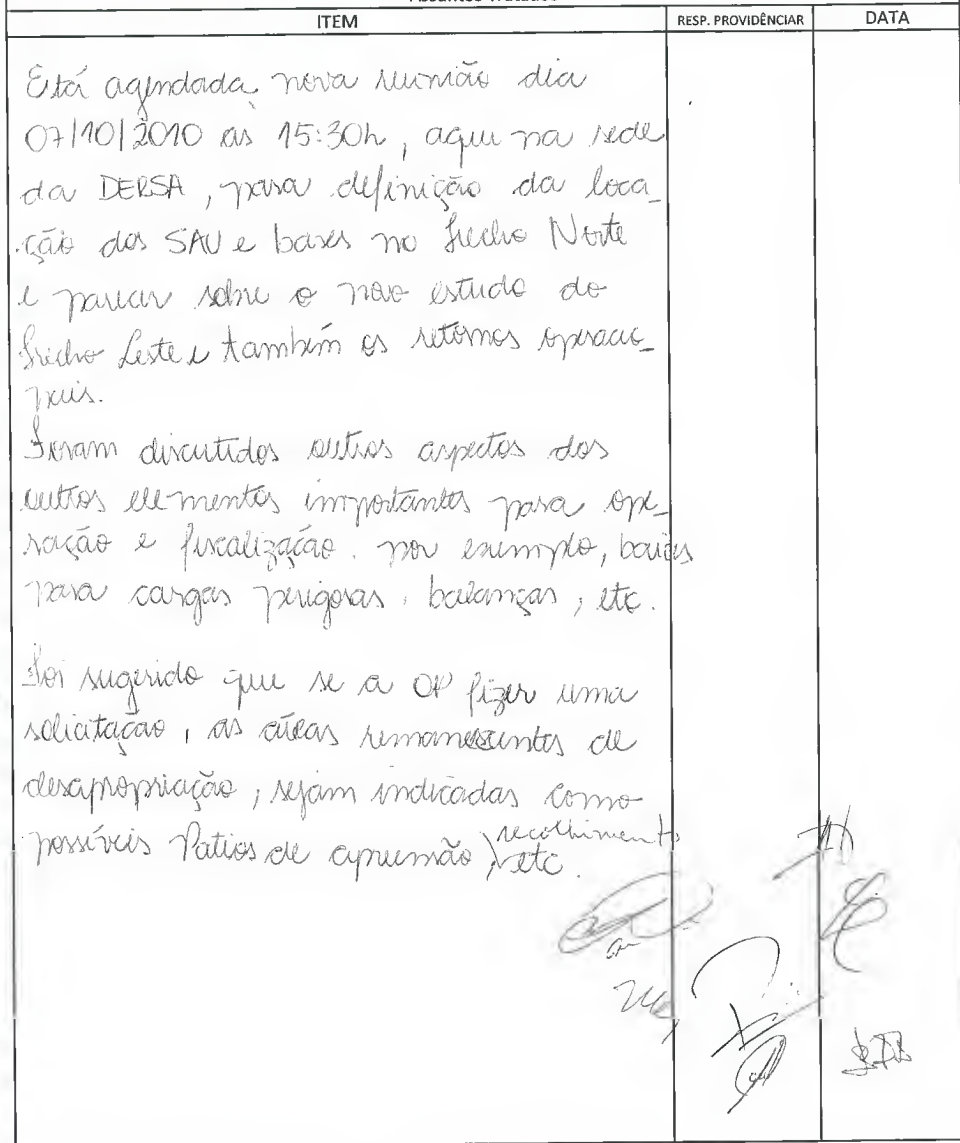 ITEM RESP. PROVIDÊNCIAR DATA
Está agendada, nova reunião dia
07/10/2010 às 15:30h, aqui na sede
da DERSA, para definição da loca_
ção dos SAU e bases no trecho Norte
e parecer sobre o novo estudo do
trecho Leste e também os retornos operacio_
nais.
Foram discutidos outros aspectos dos
outros elementos importantes para ope_
ração e fiscalização. por exemplo, baias
para cargas perigosas, balanças, etc.
Foi sugerido que se a OP fizer uma
solicitação, as áreas remanescentes de
desapropriação, sejam indicadas como
possíveis Patios de apreensão, recolhimento
etc.